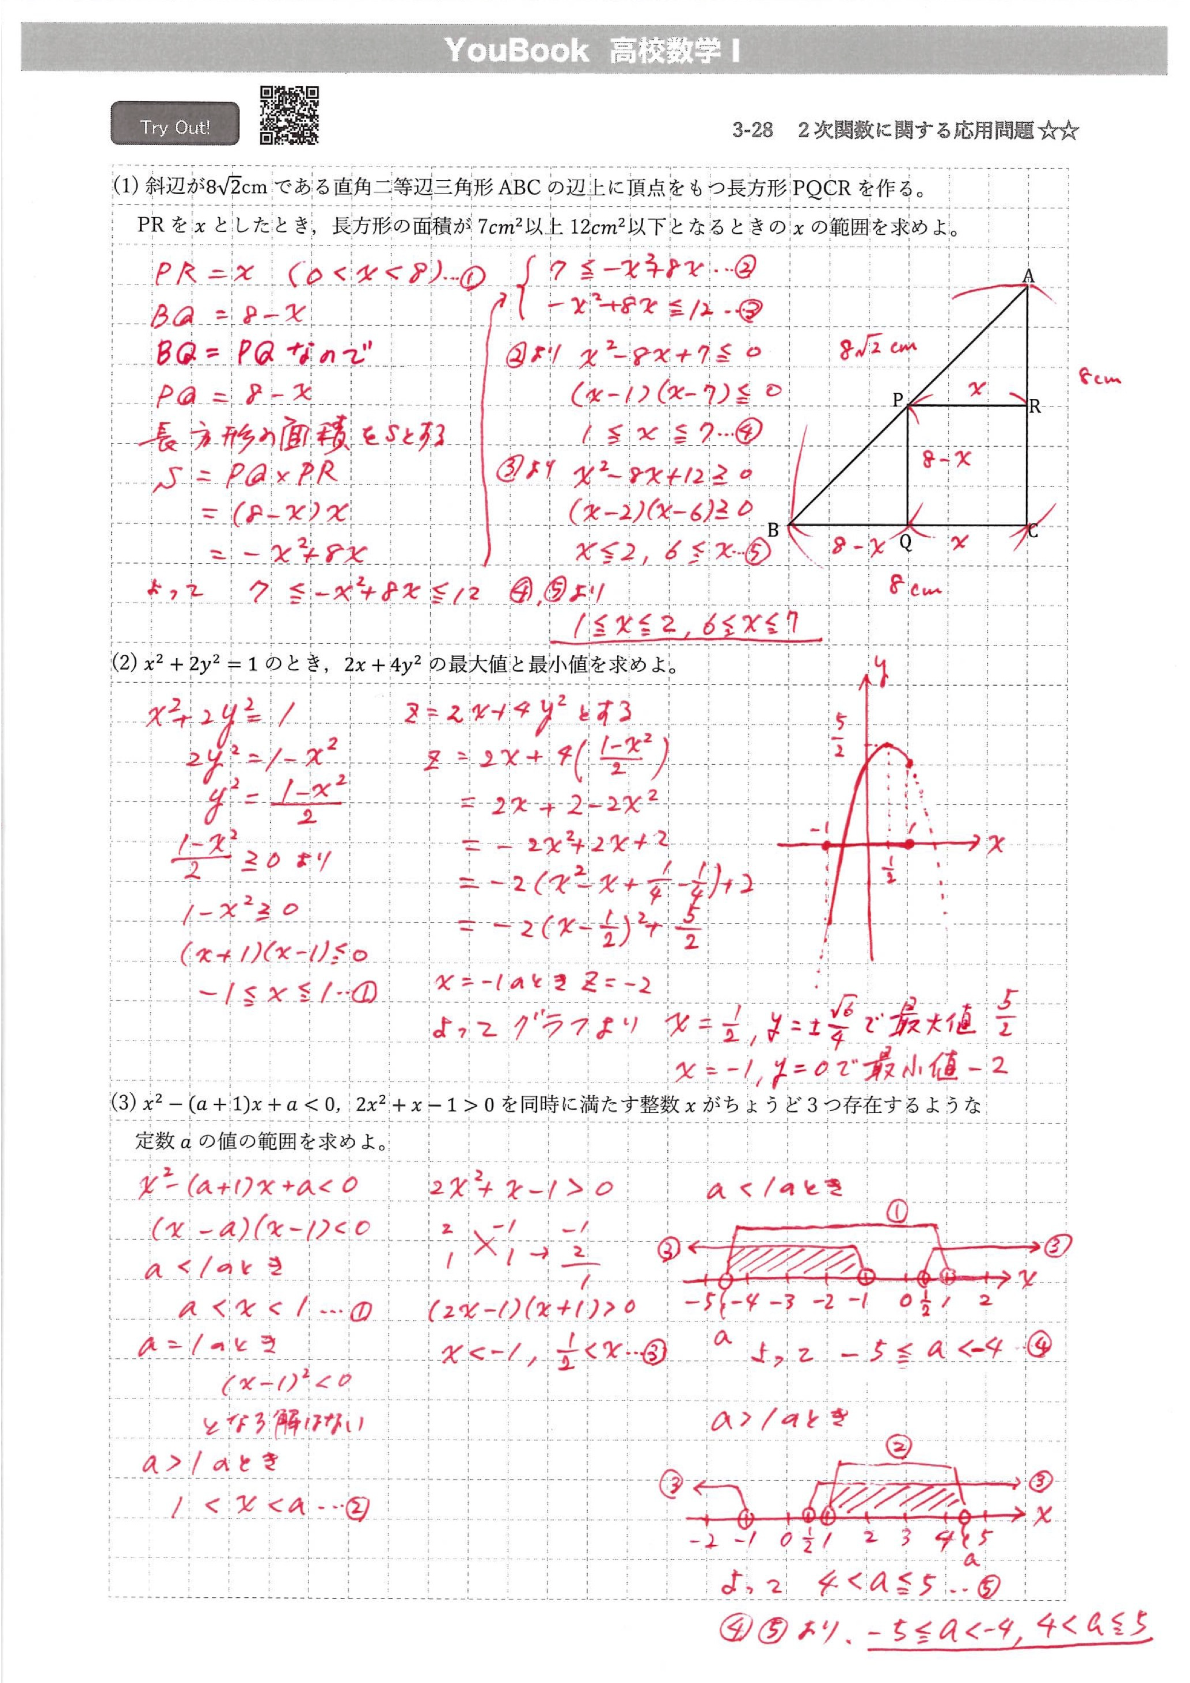 YouBook 高校数学 I
Try Out!
3-28 2次関数に関する応用問題☆☆
(1) 斜辺が8√2cm である直角二等辺三角形 ABC の辺上に頂点をもつ長方形 PQCR を作る。
PR を x としたとき，長方形の面積が 7cm²以上 12cm²以下となるときの x の範囲を求めよ。
PR = x (0 < x < 8)…①
BQ = 8-x
BQ = PQ なので
PQ = 8-x
長方形の面積をSとする
S = PQ × PR
= (8-x)x
= -x²+8x
よって 7 ≦ -x²+8x ≦ 12
{ 7 ≦ -x²+8x …②
-x²+8x ≦ 12 …③
②より x²-8x+7 ≦ 0
(x-1)(x-7) ≦ 0
1 ≦ x ≦ 7…④
③より x²-8x+12 ≧ 0
(x-2)(x-6) ≧ 0
x ≦ 2, 6 ≦ x…⑤
④,⑤より
1 ≦ x ≦ 2, 6 ≦ x ≦ 7
A
8√2 cm
8cm
P
x
R
8-x
B
8-x
Q
x
C
8cm
(2) x² + 2y² = 1 のとき，2x + 4y² の最大値と最小値を求めよ。
x²+2y² = 1
2y² = 1-x²
y² = (1-x²)/2
(1-x²)/2 ≧ 0 より
1-x² ≧ 0
(x+1)(x-1) ≦ 0
-1 ≦ x ≦ 1…①
z = 2x+4y² とする
z = 2x + 4((1-x²)/2)
= 2x + 2-2x²
= -2x²+2x+2
= -2(x²-x+1/4-1/4)+2
= -2(x-1/2)²+5/2
x = -1のとき z = -2
よって グラフより x = 1/2, y = ±√6/4 で最大値 5/2
x = -1, y = 0で最小値 -2
y
5/2
-1
1
x
1/2
(3) x² − (a + 1)x + a < 0，2x² + x − 1 > 0 を同時に満たす整数 x がちょうど3つ存在するような
定数 a の値の範囲を求めよ。
x²-(a+1)x+a < 0
(x-a)(x-1) < 0
a < 1のとき
a < x < 1 …①
a = 1のとき
(x-1)² < 0
となる解はない
a > 1のとき
1 < x < a …②
2x²+x-1 > 0
2 -1 -1
1 1 → 2
1
(2x-1)(x+1) > 0
x < -1, 1/2 < x…③
a < 1のとき
①
③ ③
-5 -4 -3 -2 -1 0 1/2 1 2 x
a
よって -5 ≦ a < -4 ④
a > 1のとき
②
③ ③
-2 -1 0 1/2 1 2 3 4 5 x
a
よって 4 < a ≦ 5 …⑤
④⑤より、-5 ≦ a < -4, 4 < a ≦ 5